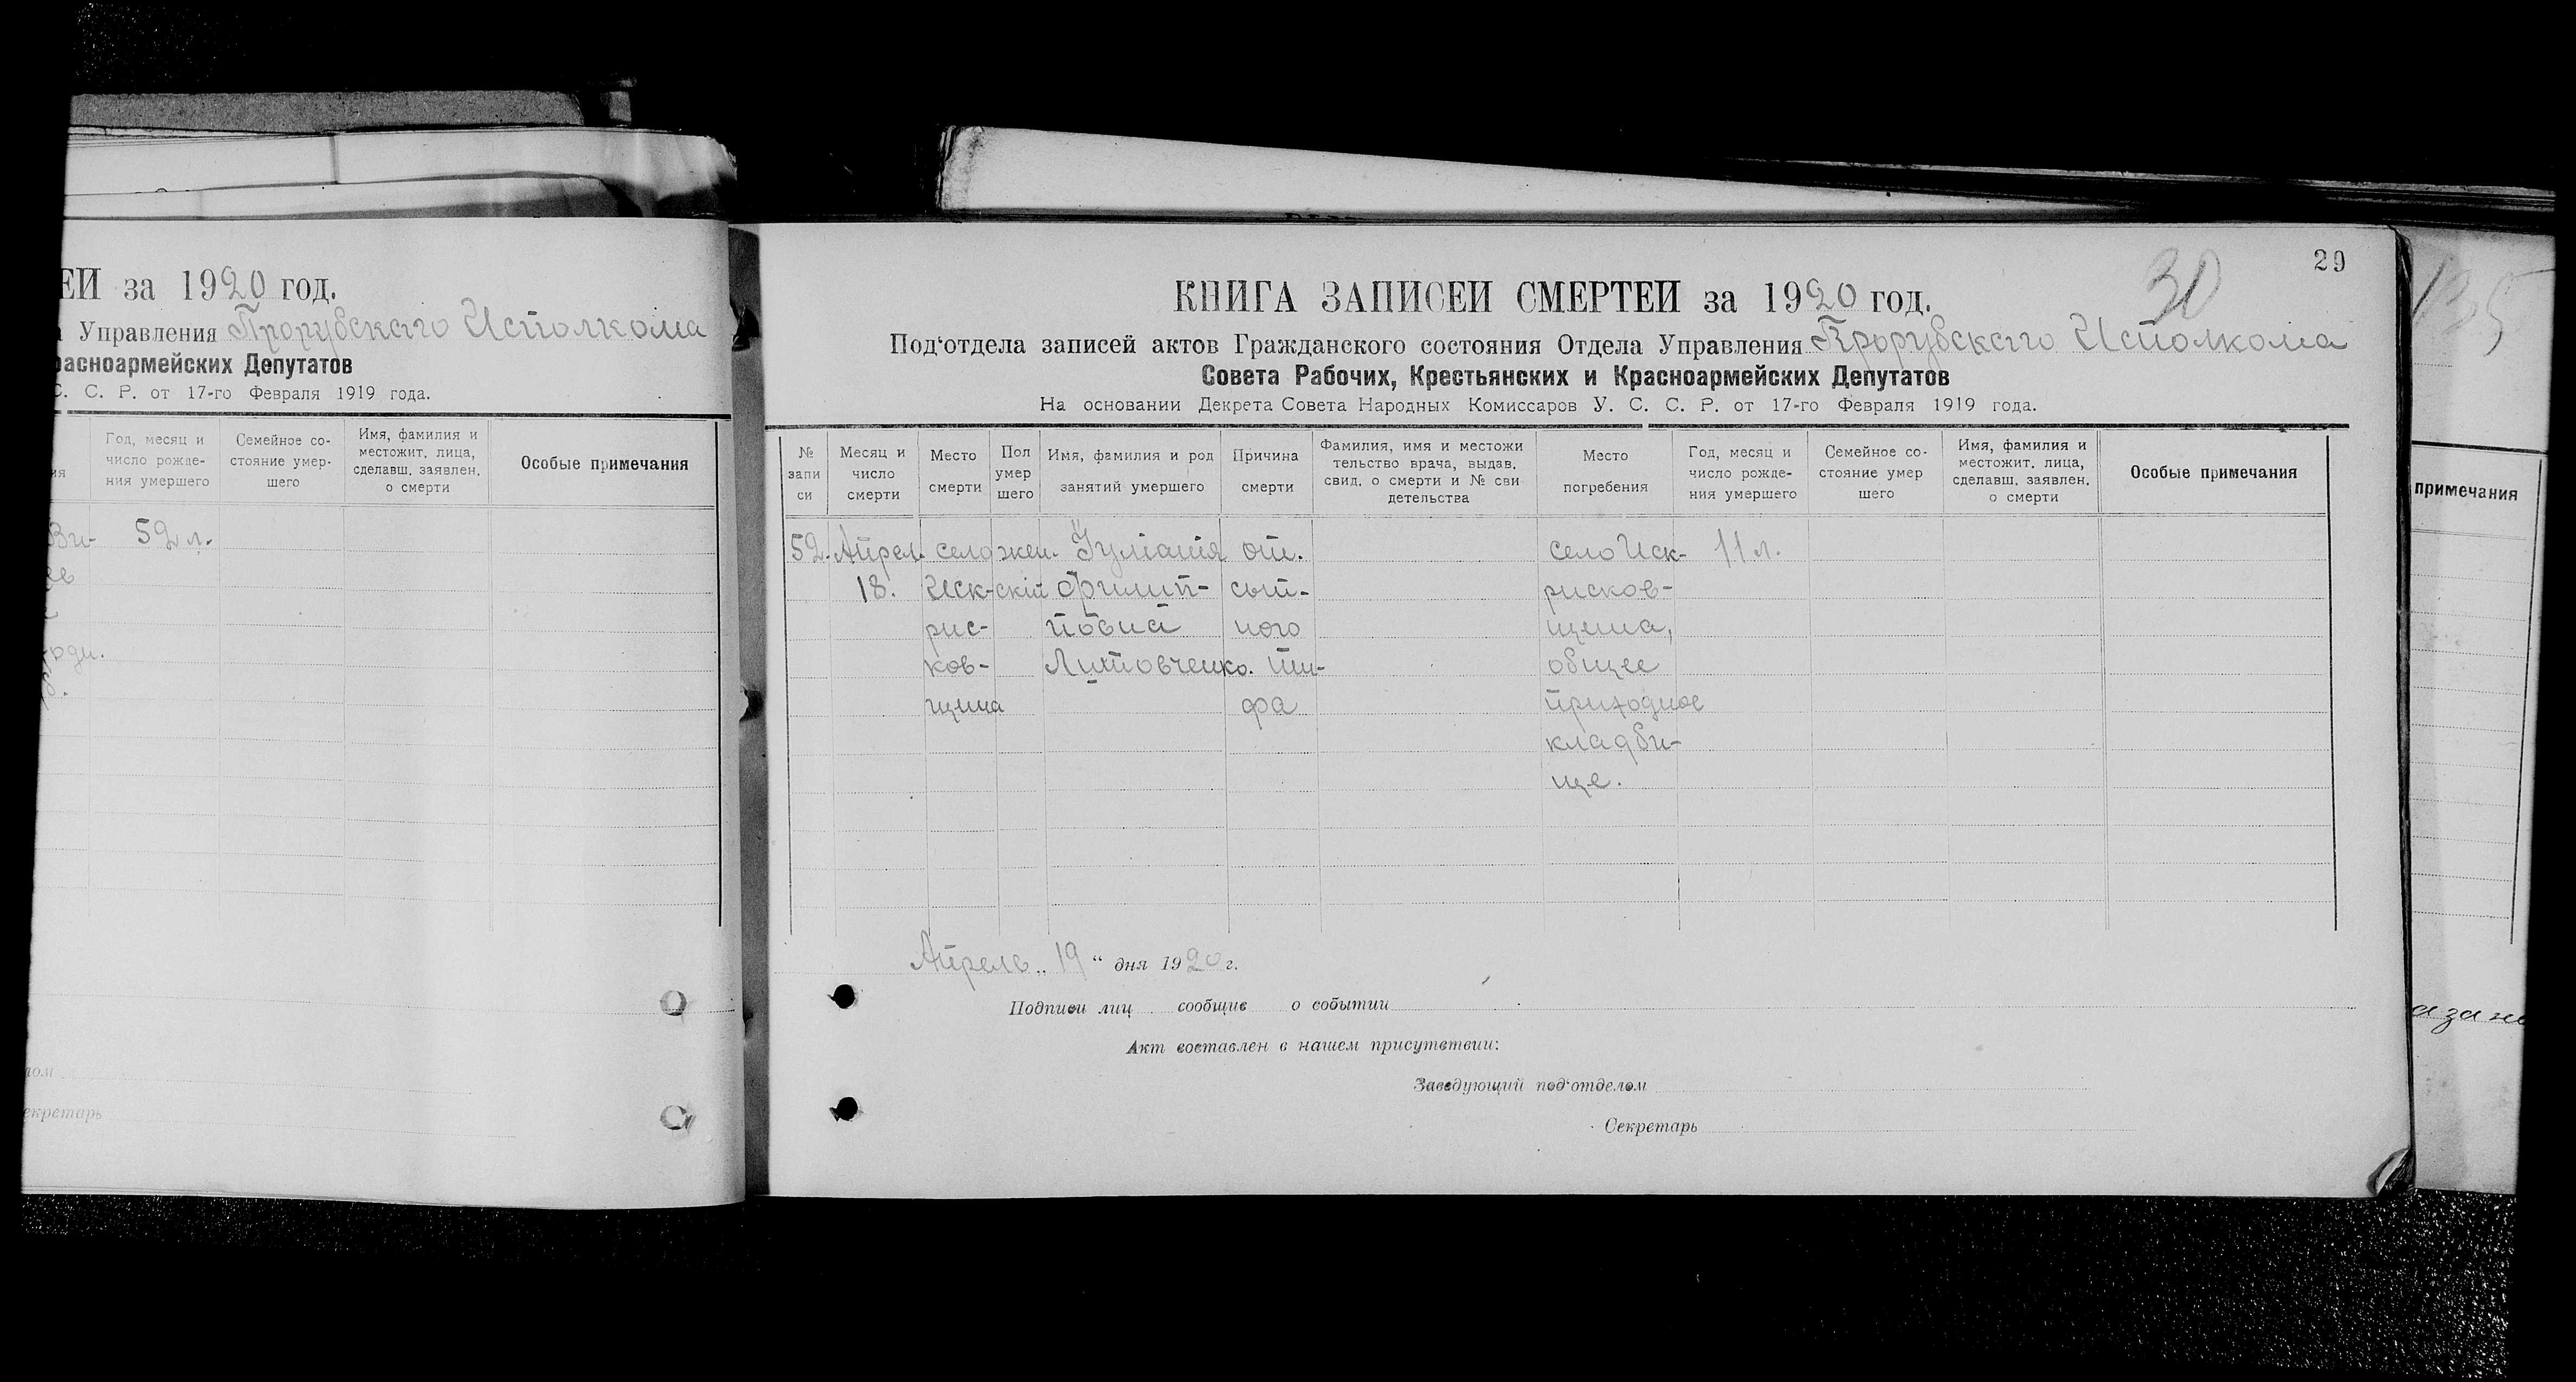 ЕЙ за 1920 год.
Управления Прорубскаго Исполкома
расноармейских Депутатов
С. С. Р. от 17-го Февраля 1919 года.
Год, месяц и число рожде-ния умершего
Семейное со-стояние умер-шего
Имя, фамилия и местожит. лица, сделавш. заявлен. о смерти
Особые примечания
52 л.
екретарь
29
30
КНИГА ЗАПИСЕЙ СМЕРТЕЙ за 1920 год.
Под‘отдела записей актов Гражданского состояния Отдела Управления Прорубскаго Исполкома
Совета Рабочих, Крестьянских и Красноармейских Депутатов
На основании Декрета Совета Народных Комиссаров У. С. С. Р. от 17-го Февраля 1919 года.
№ запи си
Месяц и число смерти
Место смерти
Пол умер шего
Имя, фамилия и род занятий умершего
Причина смерти
Фамилия, имя и местожи тельство врача, выдав. свид. о смерти и № сви детельства
Место погребения
Год, месяц и число рожде-ния умершего
Семейное со-стояние умер шего
Имя, фамилия и местожит. лица, сделавш. заявлен. о смерти
Особые примечания
52. Апрел. село жен. Иулианія от. село Иск- 11 л.
18. Иск- скій Филип- сып- рисков-
рис- повна ного щина,
ков- Лихтовченко. ти- общее
щина фа приходное
кладби-
ще.
Апрель „19“ дня 1920 г.
Подписи лиц сообщив о событии
Акт составлен в нашем присутствии:
Заведующий под‘отделом
Секретарь
135
примечания